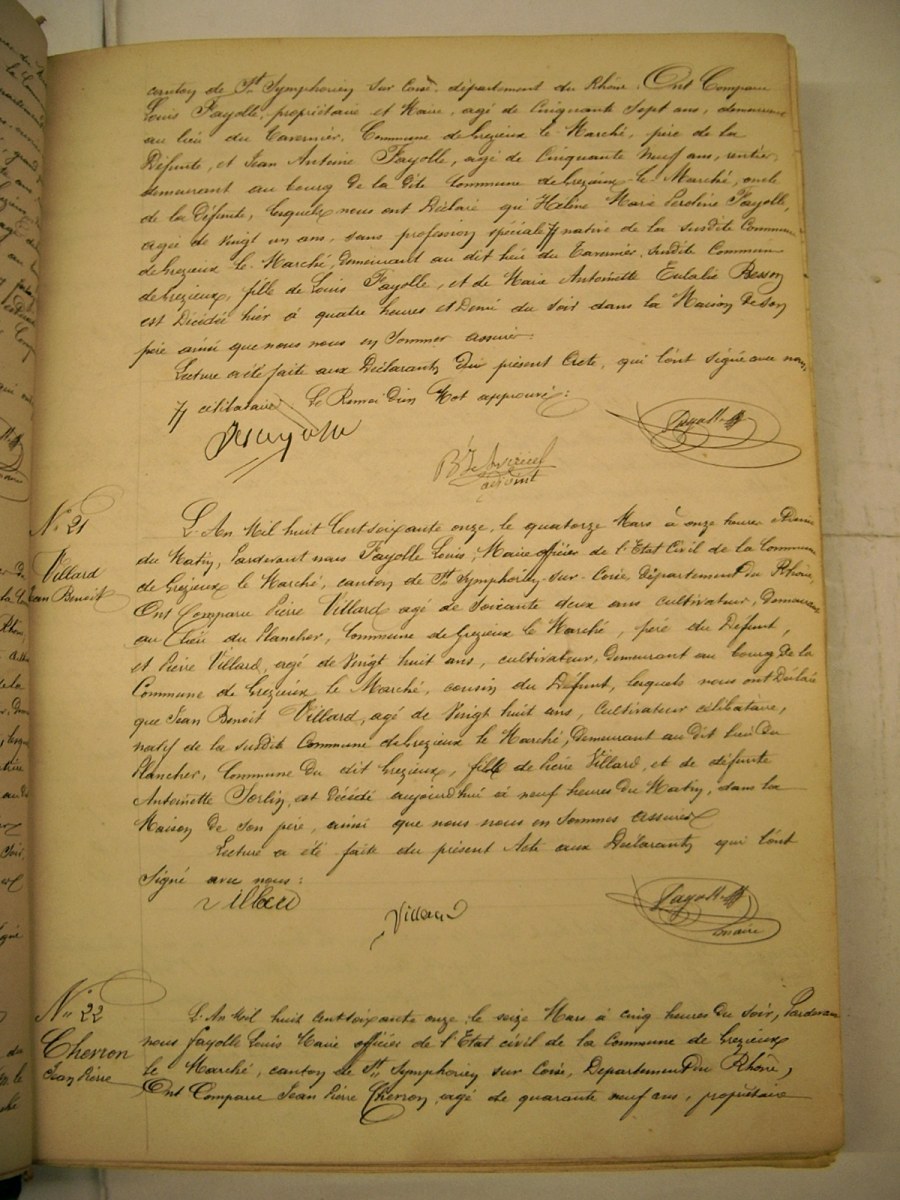 canton de St Symphorien sur Coise, département du Rhône. Ont Comparu
Louis Fayolle, propriétaire et Maire, agé de Cinquante sept ans, demeurant
au lieu du Tavernier, Commune de Grezieux le Marché, père de la
Défunte, et Jean Antoine Fayolle, agé de Cinquante neuf ans, rentier,
demeurant au bourg de la dite Commune de Grezieux le Marché, oncle
de la Défunte, lesquels nous ont Déclaré que Hélène Marie Fayolle,
agée de vingt un ans, sans profession spéciale // native de la susdite Commune
de Grezieux le Marché, demeurant au dit lieu du Tavernier, susdite Commune
de Grezieux, fille de Louis Fayolle, et de Marie Antoinette Eulalie Besson
est Décédée hier à quatre heures et Demi du soir dans la Maison de son
père ainsi que nous nous en sommes assuré
Lecture a été faite aux Déclarants du présent Acte, qui l'ont signé avec nous,
// célibataire. Le Renvoi d'un Mot approuvé:
Fayolle
adjoint
No 21
Villard
Jean Benoit
L'An Mil huit Cent soixante onze, le quatorze Mars à onze heures et Demie
du Matin, Pardevant nous Fayolle Louis, Maire officier de l'Etat Civil de la Commune
de Grezieux le Marché, canton de St Symphorien-sur-Coise, Département du Rhône,
Ont Comparu Pierre Villard agé de soixante deux ans cultivateur, Demeurant
au Lieu du Plancher, Commune de Grezieux le Marché, père du Défunt,
et Pierre Villard, agé de Vingt huit ans, cultivateur, demeurant au bourg de la
Commune de Grezieux le Marché, cousin du Défunt, lesquels nous ont Déclaré
que Jean Benoit Villard, agé de Vingt huit ans, Cultivateur célibataire,
natif de la susdite Commune de Grezieux le Marché, Demeurant au dit lieu du
Plancher, Commune du dit Grezieux, fils de Pierre Villard, et de défunte
Antoinette, est Décédé aujourd'hui à neuf heures du Matin, dans la
Maison de son père, ainsi que nous nous en sommes assuré
Lecture a été faite du présent Acte aux Déclarants qui l'ont
signé avec nous:
Villard
Villard
Fayolle
maire
No 22
Chevron
Jean Pierre
L'An Mil huit cent soixante onze le seize Mars à cinq heures du soir, Pardevant
nous Fayolle Louis Maire officier de l'Etat civil de la Commune de Grezieux
le Marché, canton de St Symphorien sur Coise, Département du Rhône,
Ont Comparu Jean Pierre Chevron, agé de quarante neuf ans, propriétaire